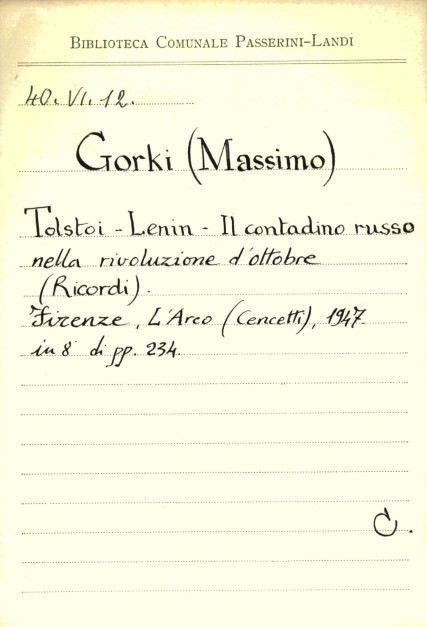 BIBLIOTECA COMUNALE PASSERINI-LANDI
40. VI. 12.
Gorki (Massimo)
Tolstoi - Lenin - Il contadino russo
nella rivoluzione d'ottobre
(Ricordi).
Firenze, L'Arco (Cencetti), 1947.
in 8° di pp. 234.
C.